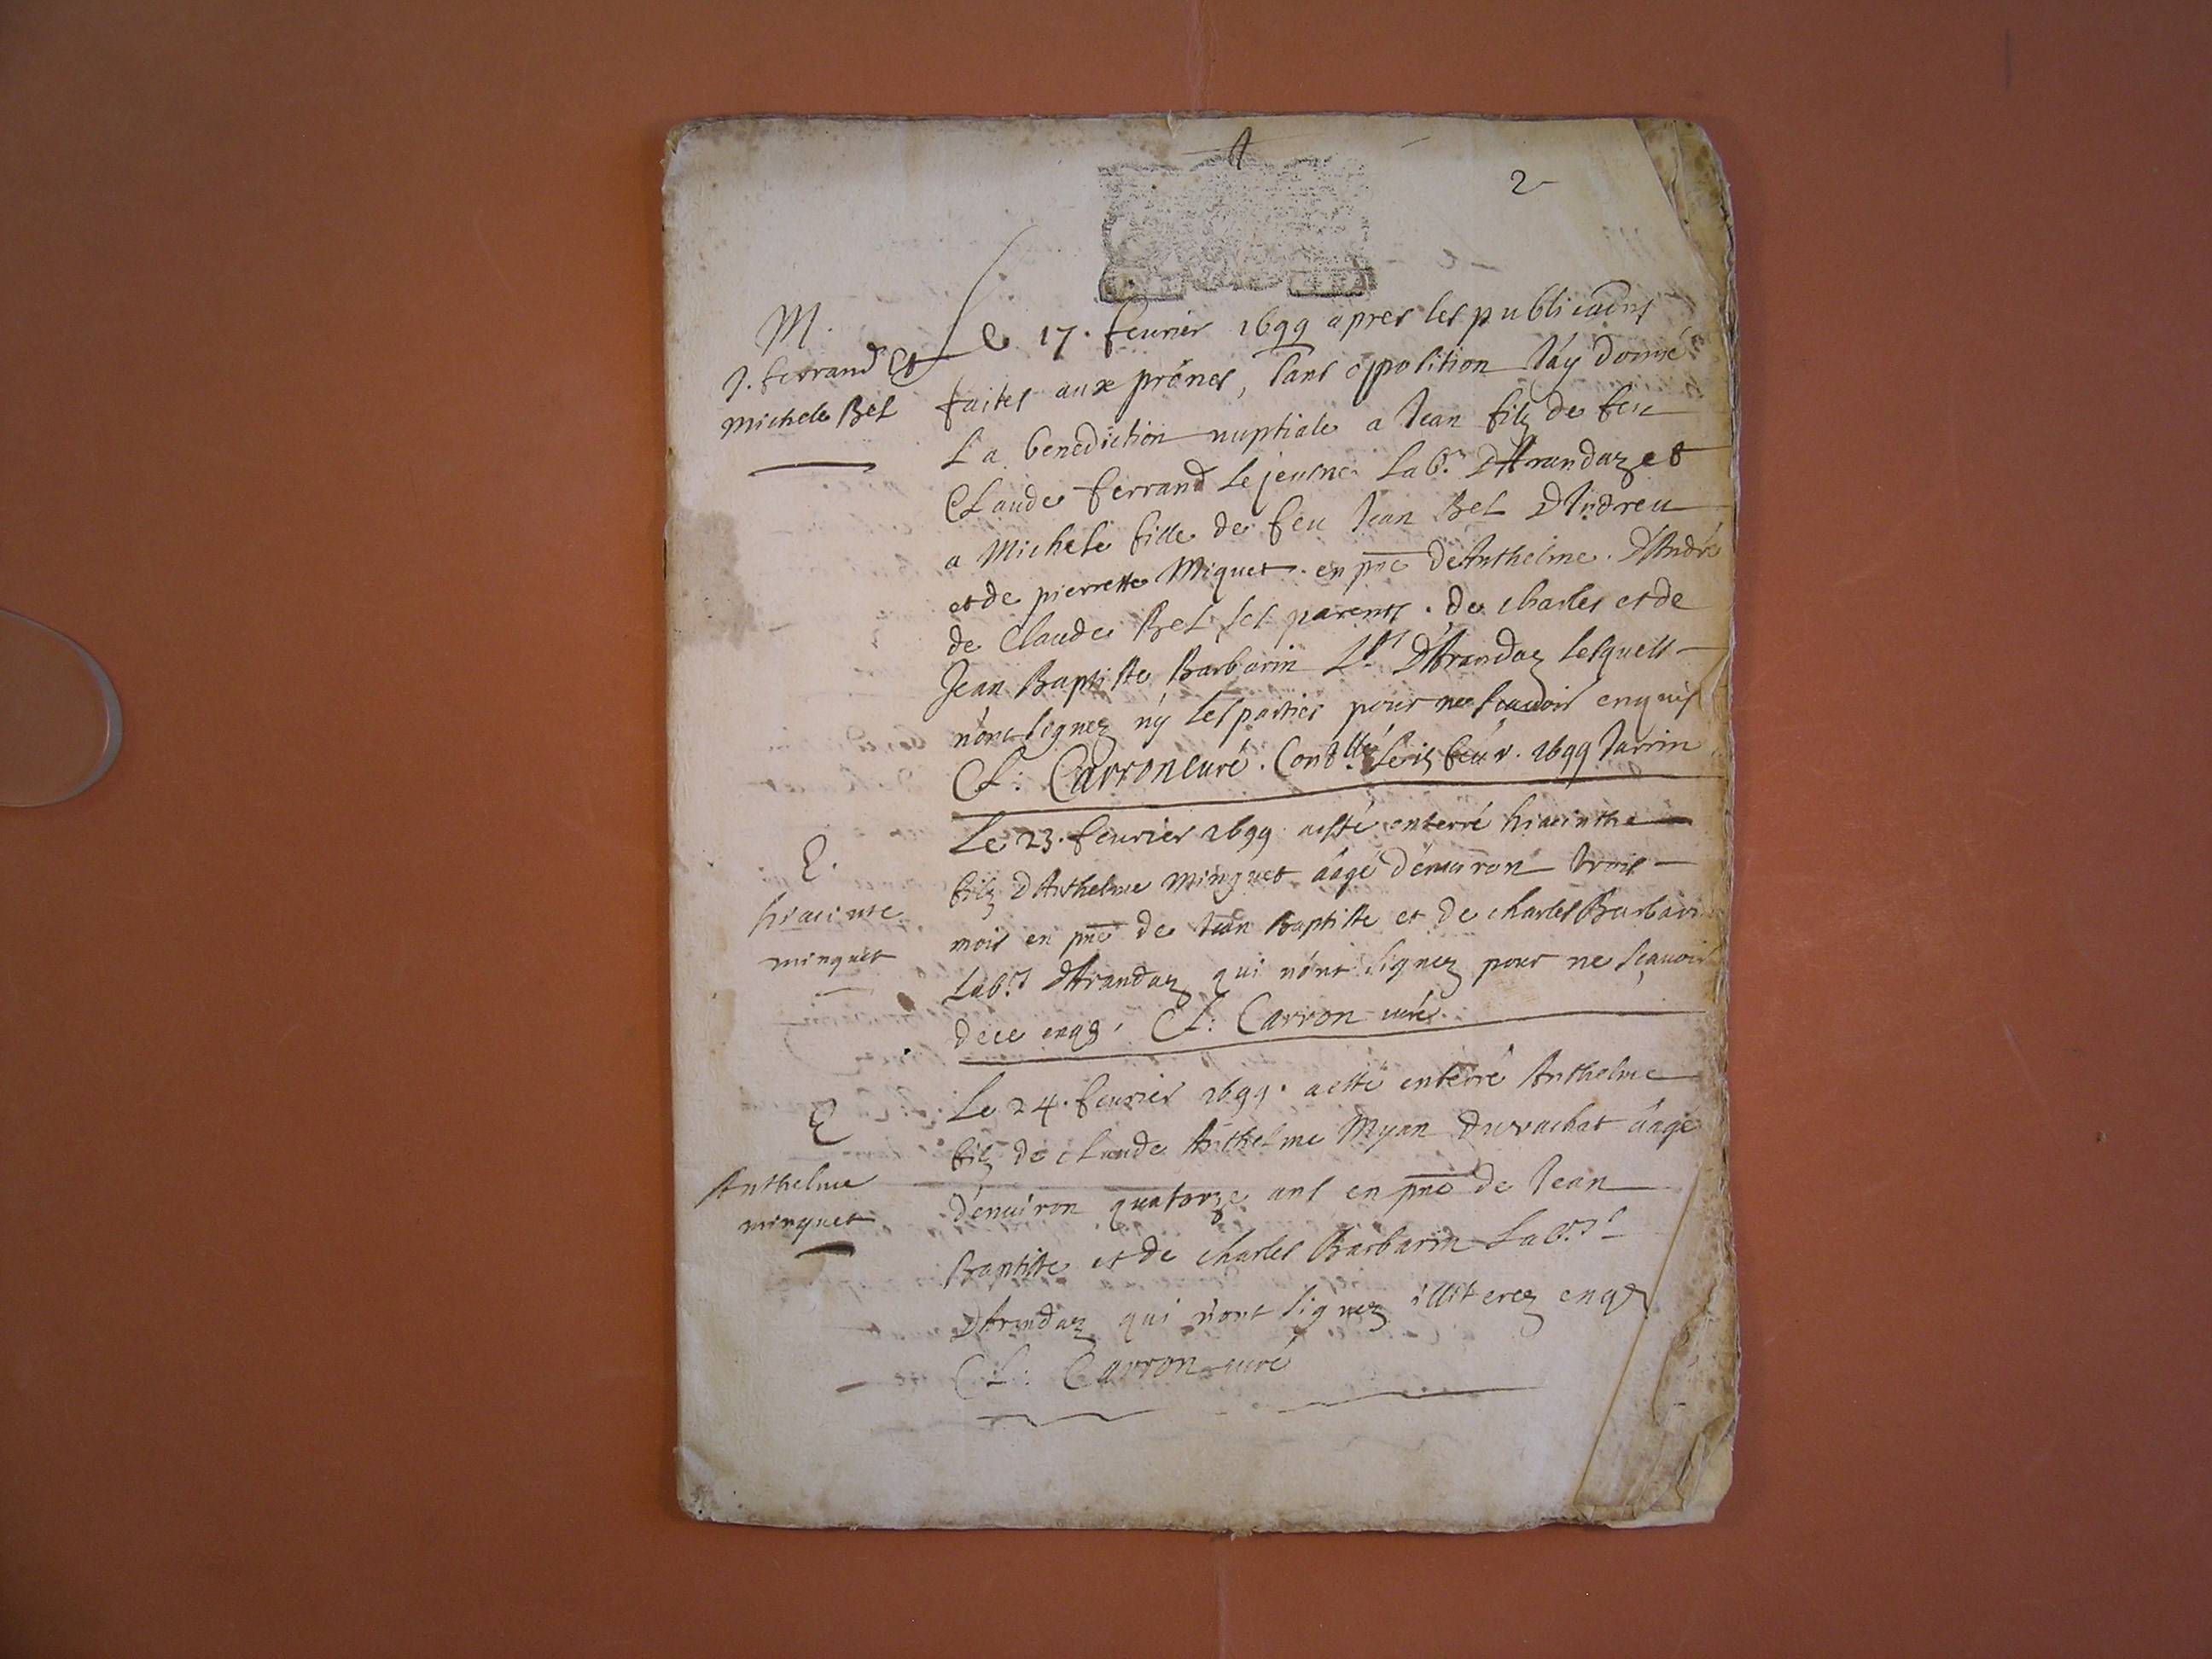 2
M.
J. ferrand et
michele Bel
Le 17. feurier 1699 apres les publicaõns
faites aux prônes, sans opposition J'ay donné
La benediction nuptiale a Jean filz de feu
Claude ferrand le jeusne Lab.r D'Arandaz et
a Michele fille de feu Jean Bel D'Indreu
et de pierrette Miquet. en pnce de Anthelme. D'André
de Claude Bel ses parents. de charles et de
Jean Baptiste Barbarin L.rs D'Arandaz lesquels
n'ont signez ny les parties pour ne scauoir enquis
Cl: Carron curé. Cont.llé feur. 1699 Jarrin
E.
hiacinte
minquet
Le 23. feurier 1699 aesté enterré hiacinthe
filz D'Anthelme minquet âagé d'enuiron trois
mois en pnce de Jean Baptiste et de charles Barbarin
Lab.rs D'Arandaz qui n'ont signez pour ne sçauoir
de ce enqs. Cl: Carron curé.
E
Anthelme
minquet
Le 24. feurier 1699. aesté enterré Anthelme
filz de claude Anthelme Myan du vachat âagé
d'enuiron quatorze ans en pnce de Jean
Baptiste et de charles Barbarin Lab.rs
D'Arandaz qui n'ont signez illiterez enqs
Cl: Carron curé